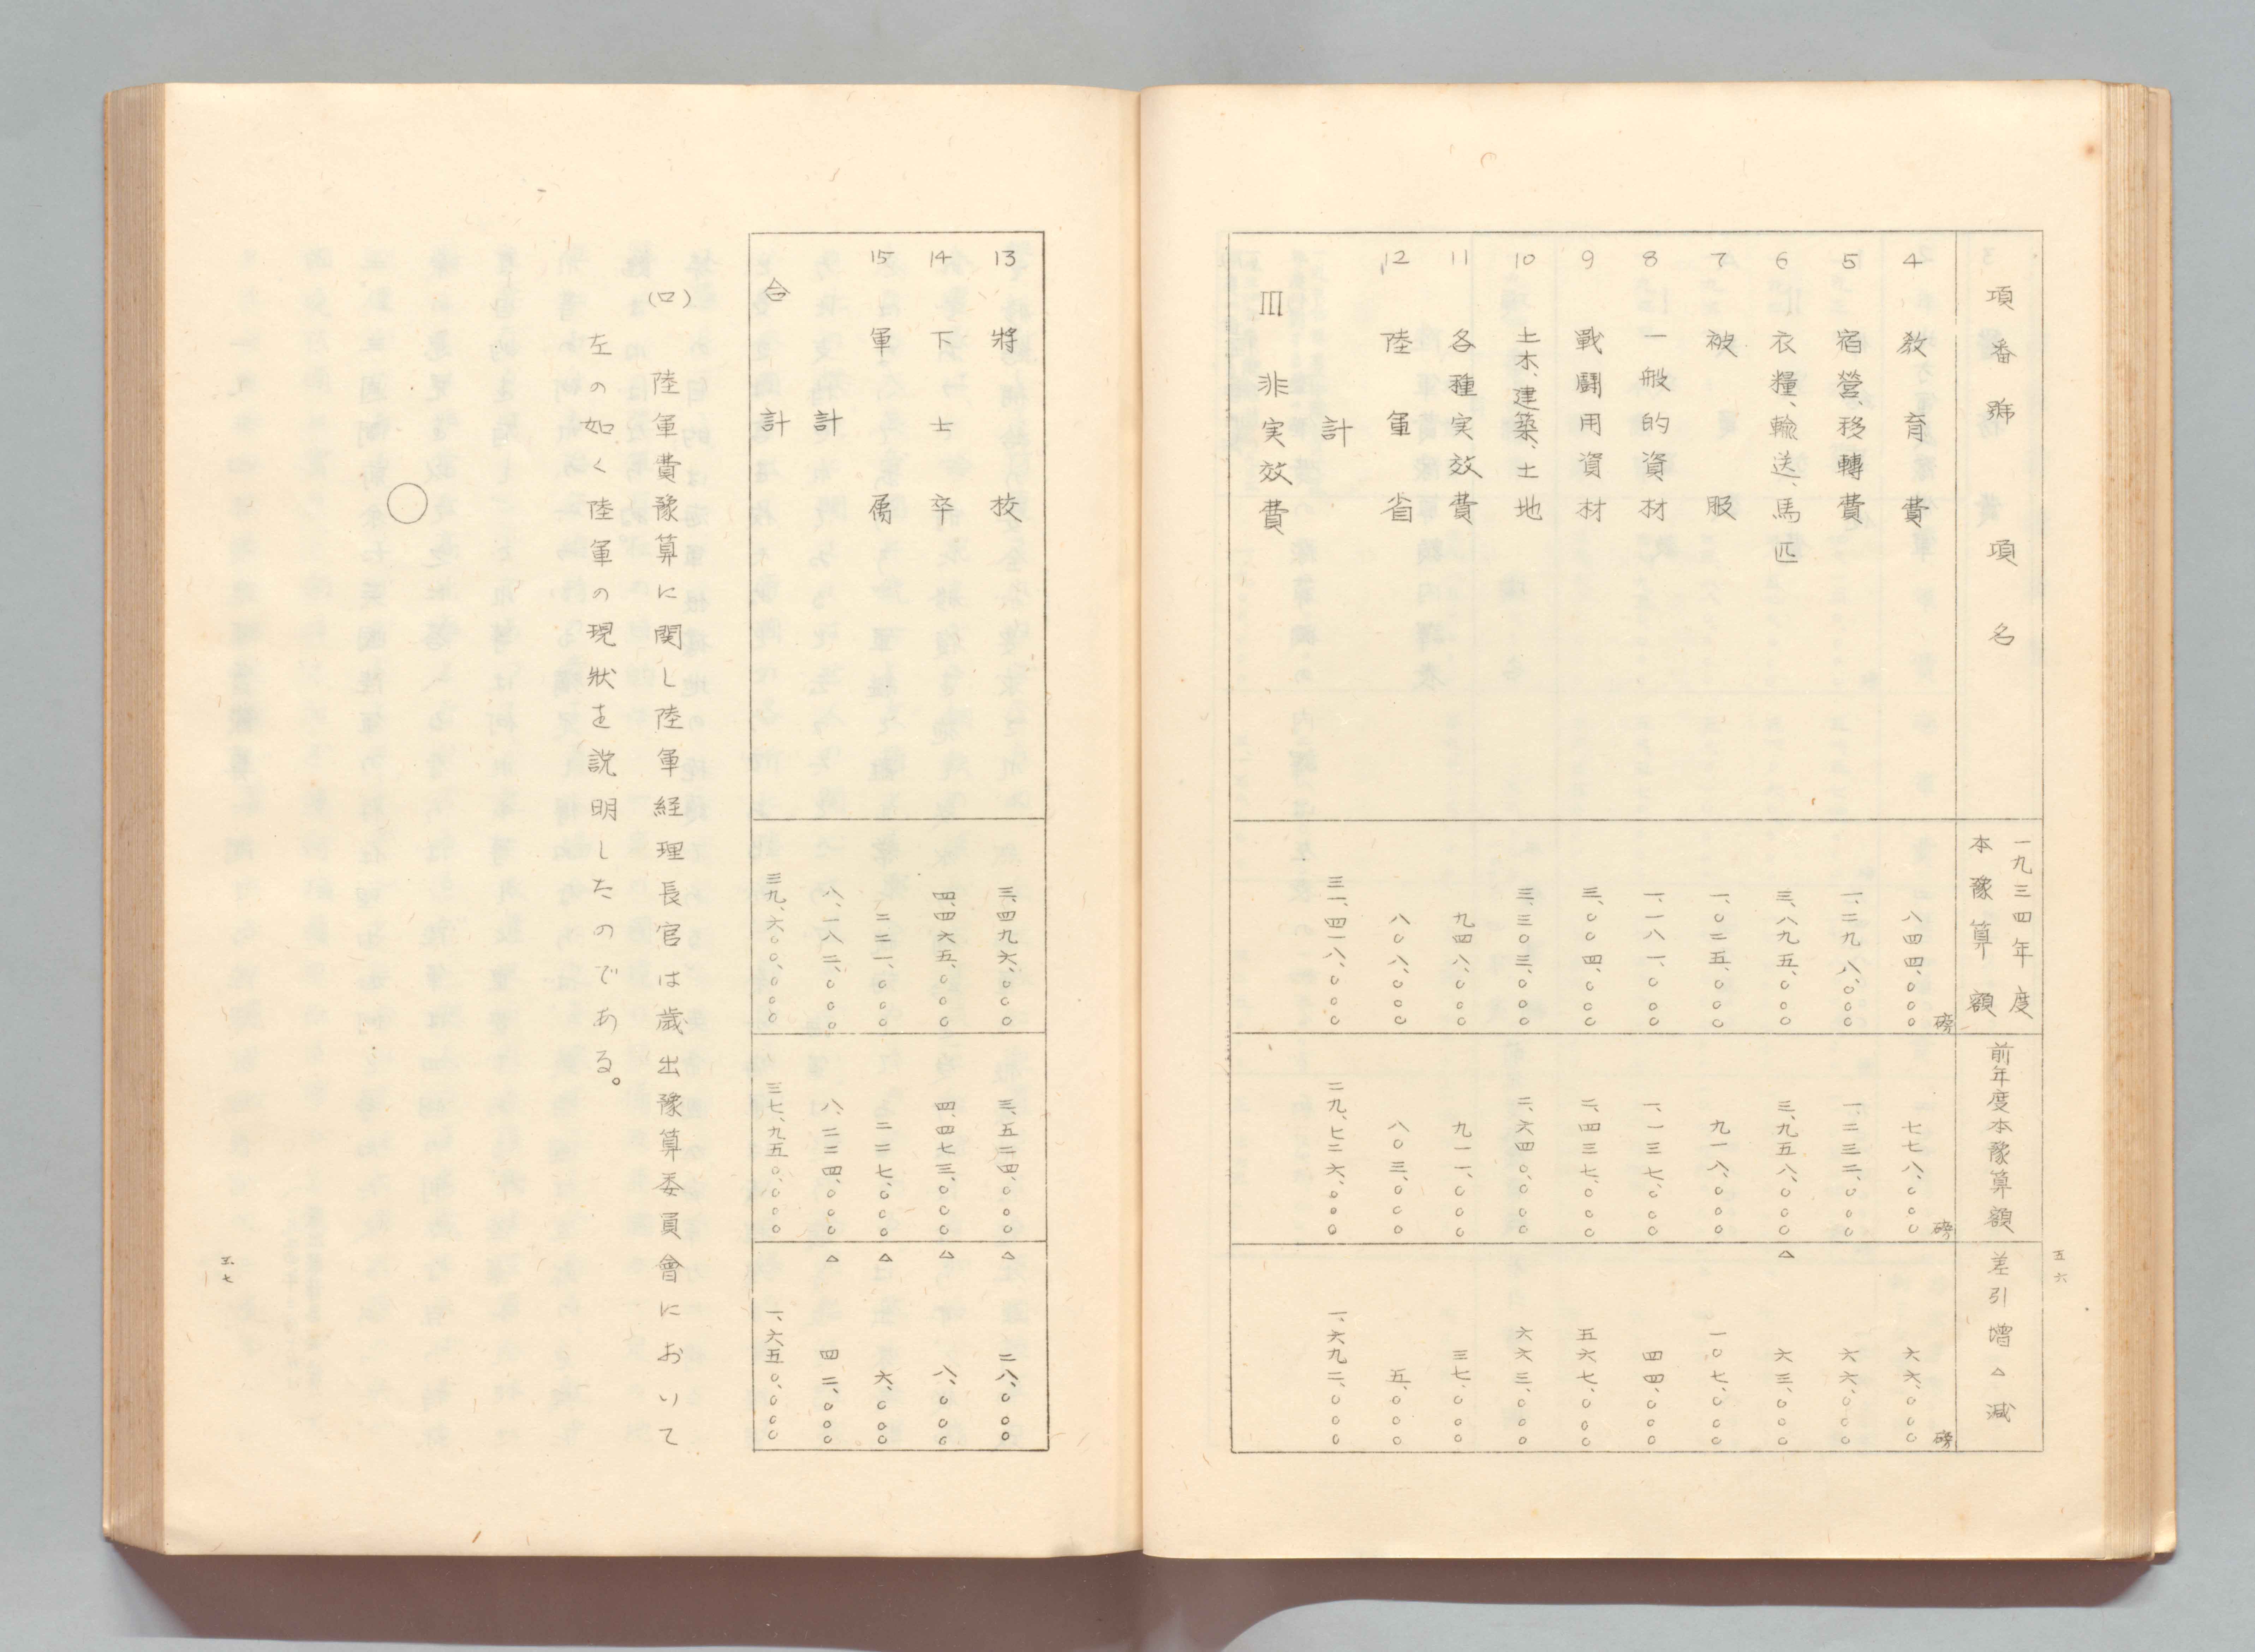 五六
項番號 項名 一九三四年度本豫算額 前年度本豫算額 差引増△減
磅 磅 磅
4 教育費 八四四、〇〇〇 七七八、〇〇〇 六六、〇〇〇
5 宿營、移轉費 一、二九八、〇〇〇 一、二三二、〇〇〇 六六、〇〇〇
6 衣糧、輸送、馬匹 三、八九五、〇〇〇 三、九五八、〇〇〇 △ 六三、〇〇〇
7 被服 一、〇二五、〇〇〇 九一八、〇〇〇 一〇七、〇〇〇
8 一般的資材 一、一八一、〇〇〇 一、一三七、〇〇〇 四四、〇〇〇
9 戰鬪用資材 三、〇〇四、〇〇〇 二、四三七、〇〇〇 五六七、〇〇〇
10 土木、建築、土地 三、三〇三、〇〇〇 二、六四〇、〇〇〇 六六三、〇〇〇
11 各種実效費 九四八、〇〇〇 九一一、〇〇〇 三七、〇〇〇
12 陸軍省 八〇八、〇〇〇 八〇三、〇〇〇 五、〇〇〇
計 三一、四一八、〇〇〇 二九、七二六、〇〇〇 一、六九二、〇〇〇
III 非実效費
13 將校 三、四九六、〇〇〇 三、五二四、〇〇〇 △ 二八、〇〇〇
14 下士卒 四、四六五、〇〇〇 四、四七三、〇〇〇 △ 八、〇〇〇
15 軍属 二二一、〇〇〇 二二七、〇〇〇 △ 六、〇〇〇
計 八、一八二、〇〇〇 八、二二四、〇〇〇 △ 四二、〇〇〇
合計 三九、六〇〇、〇〇〇 三七、九五〇、〇〇〇 一、六五〇、〇〇〇
(ロ) 陸軍費豫算に関し陸軍経理長官は歳出豫算委員會において
左の如く陸軍の現狀を説明したのである。
○
五七